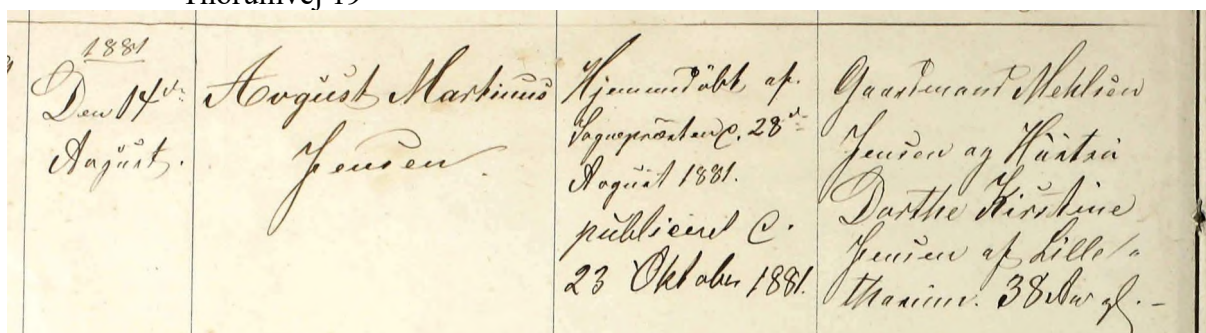 Thorumvej 19
1881
Den 14de
August.
August Martinus
Jensen.
Hjemmedøbt af
Sognepræsten d. 28de
August 1881.
publiceret d.
23 Oktober 1881.
Gaardmand Mehlsen
Jensen og Hustru
Dorthe Kirstine
Jensen af Lille
Thorum. 38 Aar gl. –